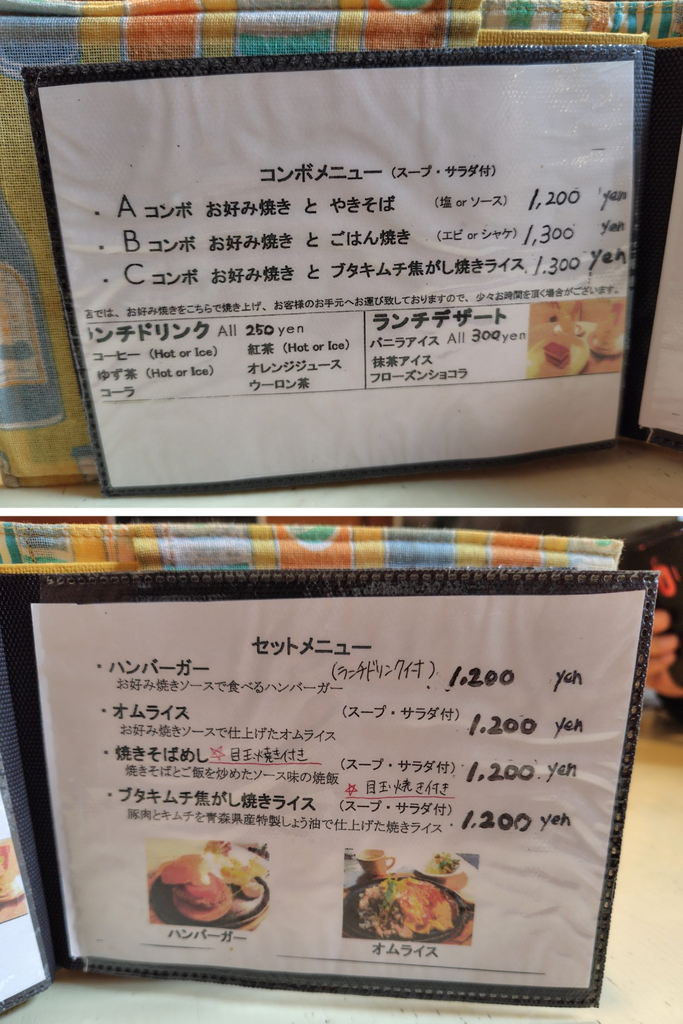 コンボメニュー（スープ・サラダ付）
・Aコンボ お好み焼き と やきそば （塩 or ソース） 1,200 yen
・Bコンボ お好み焼き と ごはん焼き （エビ or シャケ） 1,300 yen
・Cコンボ お好み焼き と ブタキムチ焦がし焼きライス 1.300 yen
では、お好み焼きをこちらで焼き上げ、お客様のお手元へお運び致しておりますので、少々お時間を頂く場合がございます。
ンチドリンク All 250yen
コーヒー（Hot or Ice） 紅茶（Hot or Ice）
ゆず茶（Hot or Ice） オレンジジュース
コーラ ウーロン茶
ランチデザート
バニラアイス All 300yen
抹茶アイス
フローズンショコラ
セットメニュー
・ハンバーガー （ランチドリンク付） 1.200 yen
お好み焼きソースで食べるハンバーガー
・オムライス （スープ・サラダ付） 1.200 yen
お好み焼きソースで仕上げたオムライス
・焼きそばめし☆目玉焼き付き （スープ・サラダ付） 1,200.yen
焼きそばとご飯を炒めたソース味の焼飯
☆目玉焼き付き
・ブタキムチ焦がし焼きライス （スープ・サラダ付）
豚肉とキムチを青森県産特製しょう油で仕上げた焼きライス・1.200 yen
ハンバーガー
オムライス